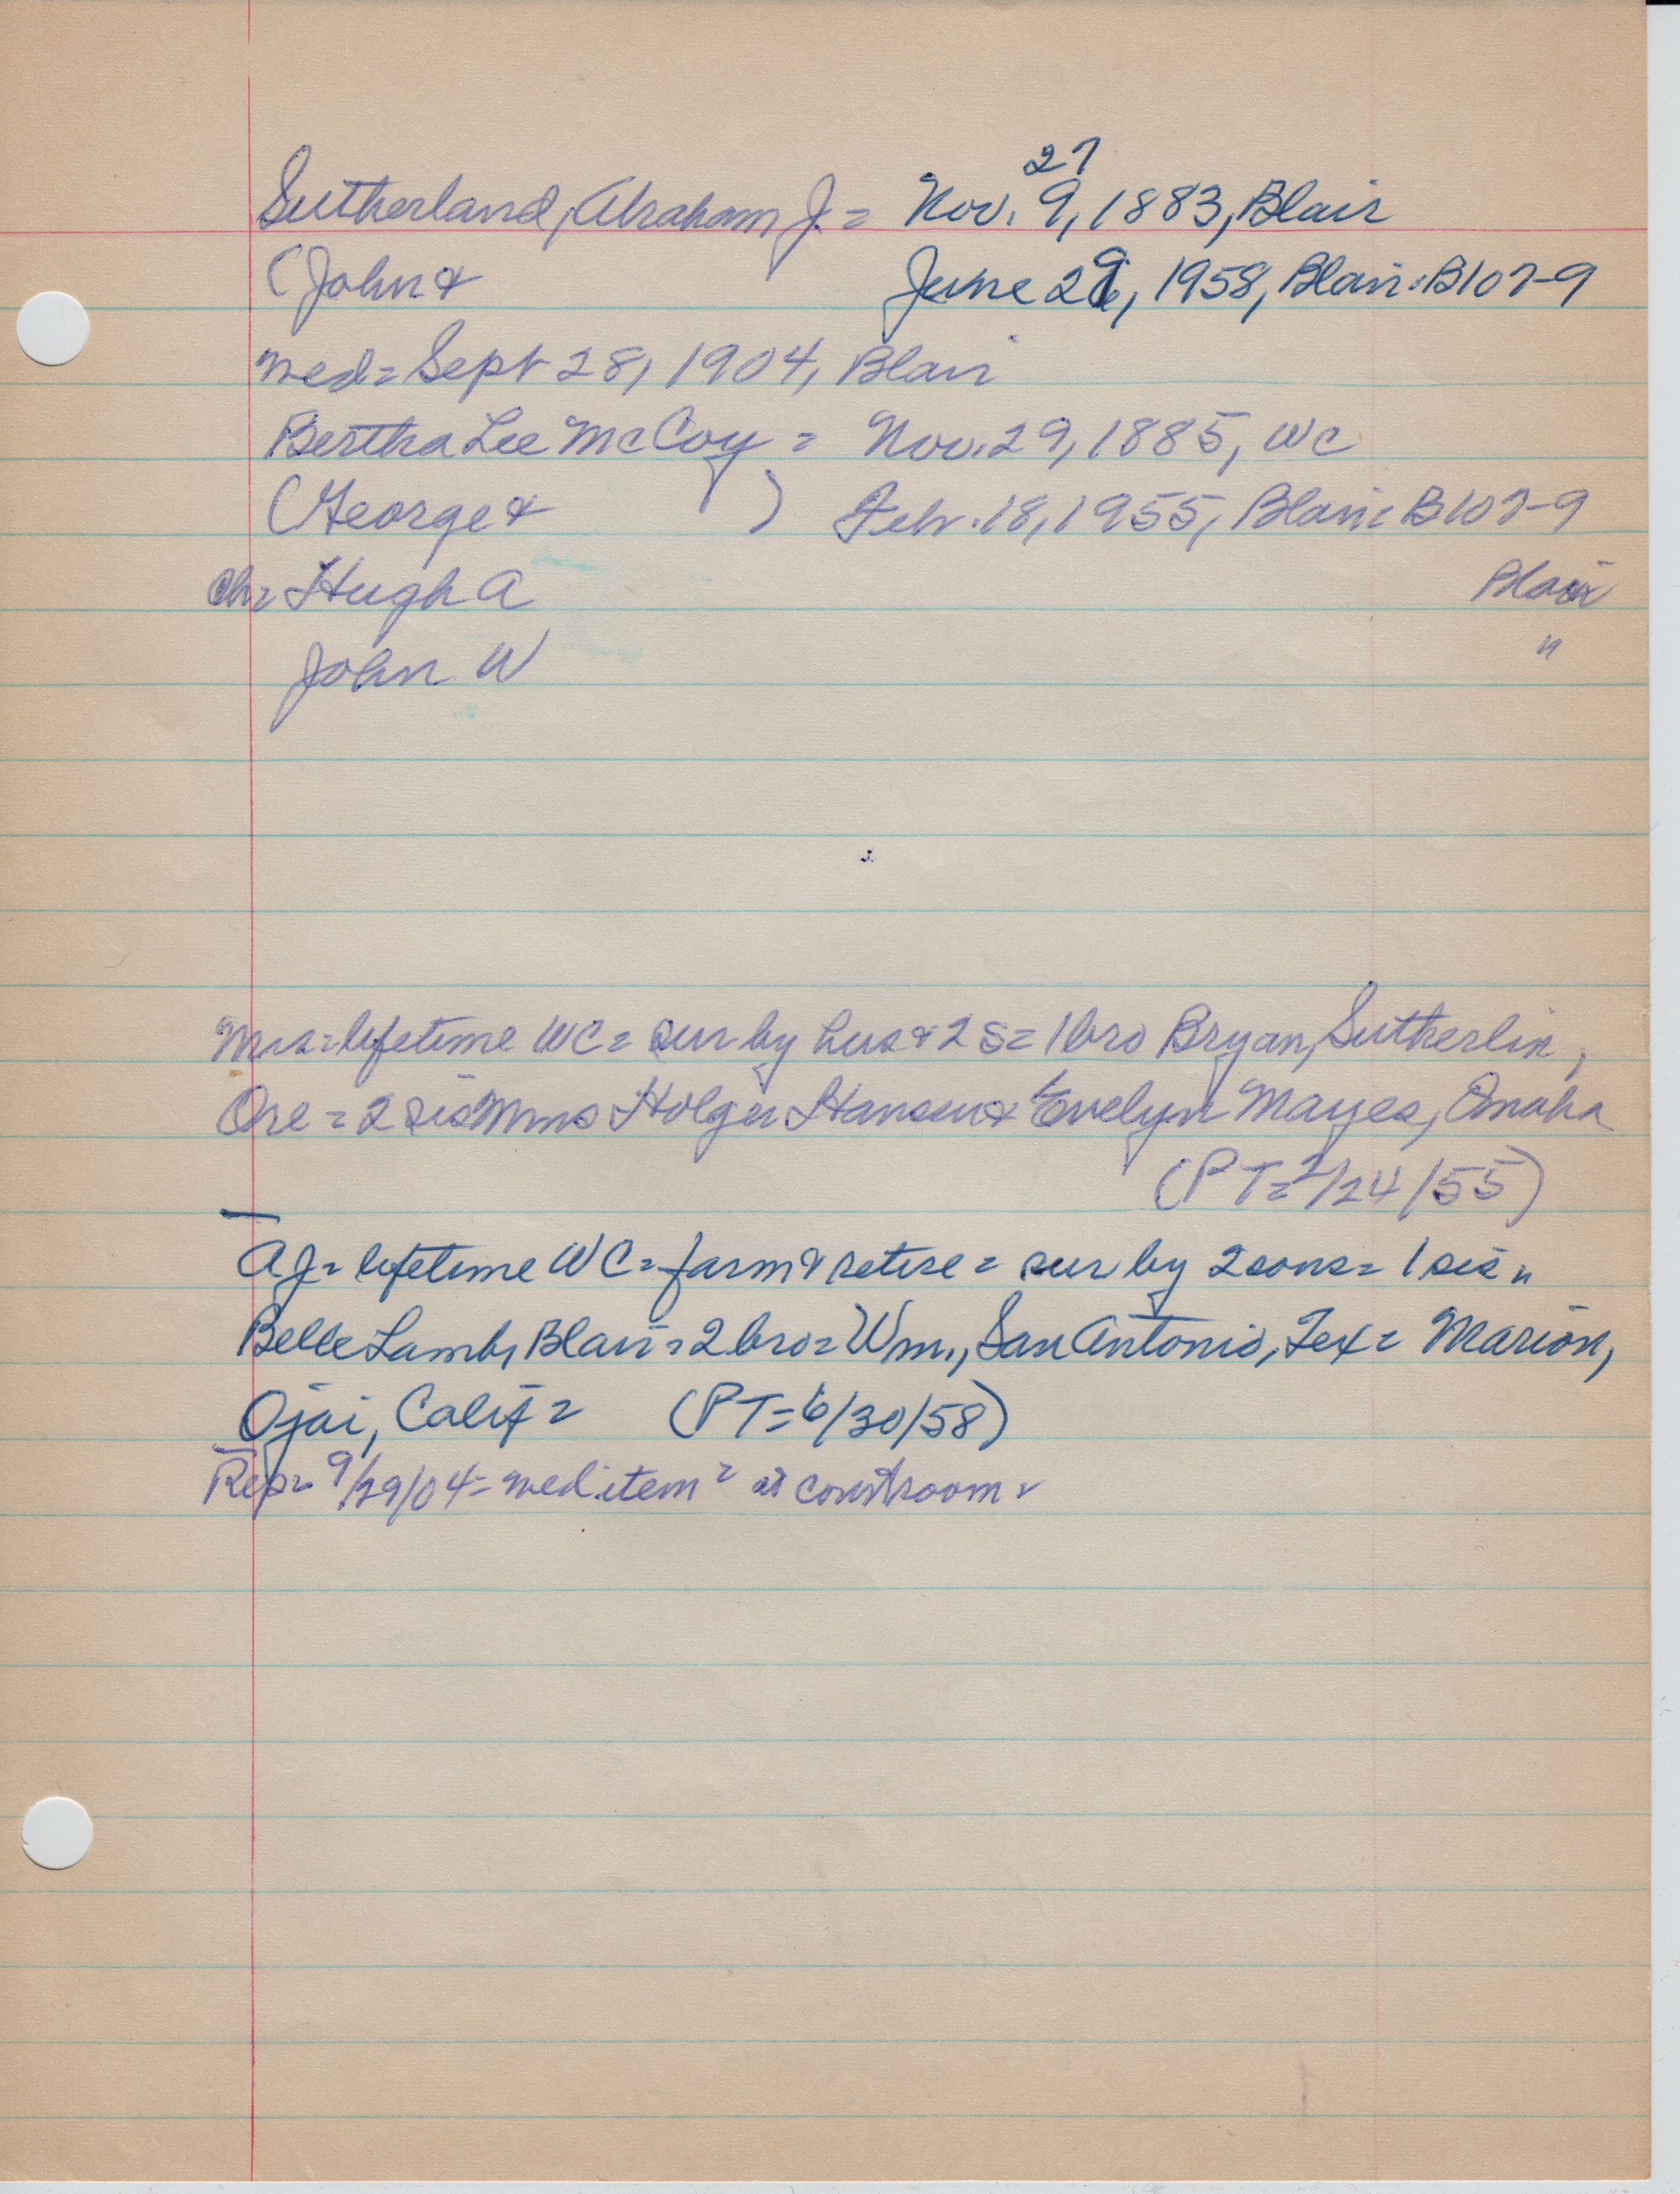 27
Sutherland, Abraham J. = Nov. 9, 1883, Blair
(John & June 29, 1958, Blair = B107-9
wed = Sept 28, 1904, Blair
Bertha Lee McCoy = Nov. 29, 1885, WC
(George & ) Feb. 18, 1955, Blair = B107-9
Ch = Hugh A Blair
John W "
Mrs = lifetime WC = sur by hus & 2 s = 1 bro Bryan, Sutherlin,
Ore = 2 sis Mms Holger Hansen & Evelyn Mayes, Omaha
(PT = 2/24/55)
AJ = lifetime WC = farm & retire = sur by 2 sons = 1 sis =
Belle Lamb, Blair = 2 bro = Wm., San Antonio, Tex = Marion,
Ojai, Calif = (PT = 6/30/58)
Rep = 9/29/04 = wed item = at courtroom =